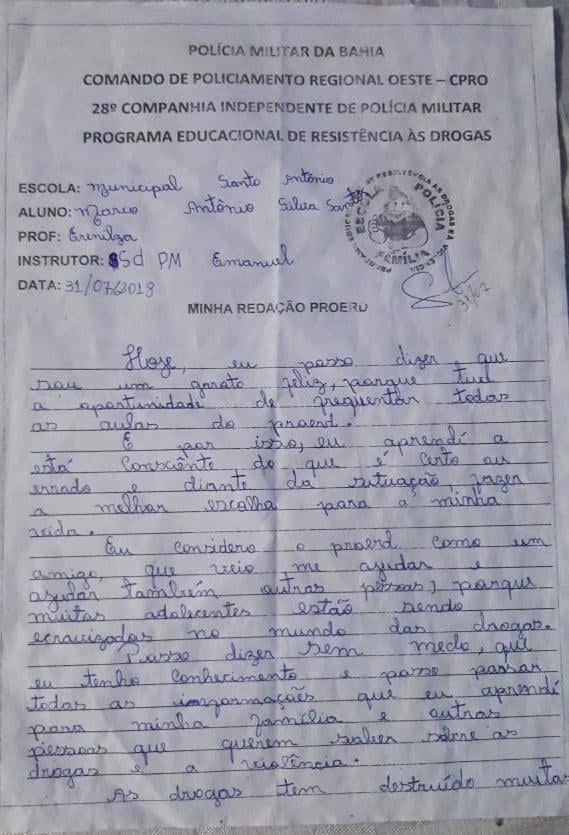 POLÍCIA MILITAR DA BAHIA
COMANDO DE POLICIAMENTO REGIONAL OESTE – CPRO
28º COMPANHIA INDEPENDENTE DE POLÍCIA MILITAR
PROGRAMA EDUCACIONAL DE RESISTÊNCIA ÀS DROGAS
ESCOLA: Municipal Santo Antônio
ALUNO: Marco Antônio Silva Santos
PROF: Erenilza
INSTRUTOR: Sd PM Emanuel
DATA: 31/07/2018
ESCOLA POLÍCIA
FAMÍLIA
31/07
MINHA REDAÇÃO PROERD
Hoje, eu posso dizer, que
sou um garoto feliz, porque tive
a oportunidade de frequentar todas
as aulas do proerd.
E por isso, eu aprendi a
está consciênte do que é certo ou
errado e diante da situação, fazer
a melhor escolha para a minha
vida.
Eu considero o proerd como um
amigo, que veio me ajudar e
ajudar também outras pessoas, porque
muitas adolecentes estão sendo
ecravizados no mundo das drogas.
Posso dizer sem medo, que
eu tenho conhecimento e posso passar
todas as informações que eu aprendi
para minha família e outras
pessoas que querem saber sobre as
drogas e a violência.
As drogas tem destruído muitas